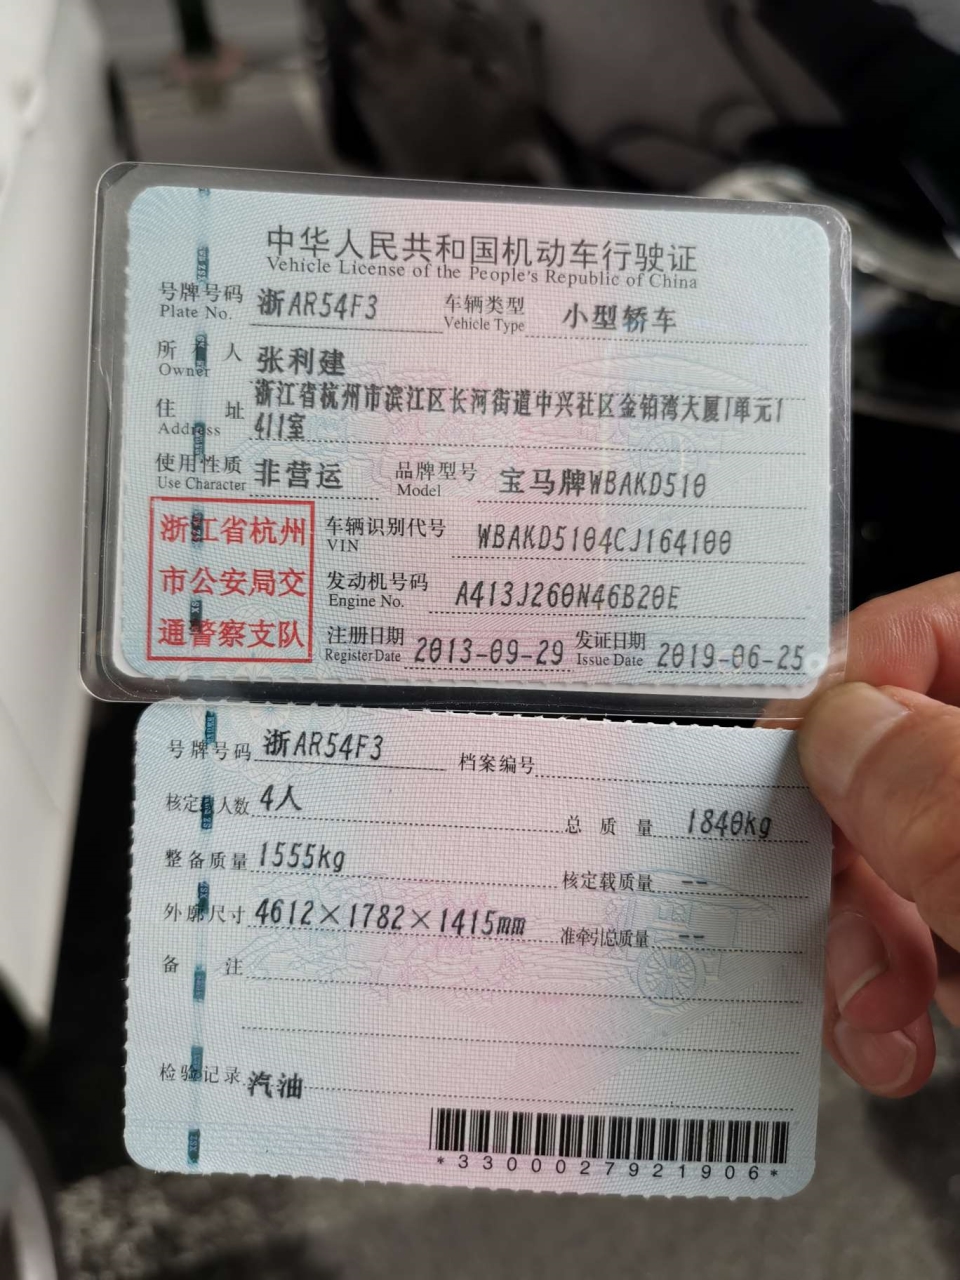 中华人民共和国机动车行驶证
Vehicle License of the People's Republic of China
号牌号码 浙AR54F3 车辆类型 小型轿车
Plate No. Vehicle Type
所有人 张利建
Owner
住址 浙江省杭州市滨江区长河街道中兴社区金铂湾大厦1单元1
Address 411室
使用性质 非营运 品牌型号 宝马牌WBAKD510
Use Character Model
浙江省杭州
市公安局交
通警察支队
车辆识别代号 WBAKD5104CJ164100
VIN
发动机号码 A413J260N46B20E
Engine No.
注册日期 2013-09-29 发证日期 2019-06-25
Register Date Issue Date
号牌号码 浙AR54F3 档案编号
核定载人数 4人 总质量 1840kg
整备质量 1555kg 核定载质量 --
外廓尺寸 4612×1782×1415mm 准牵引总质量 --
备注
检验记录 汽油
*3300027921906*